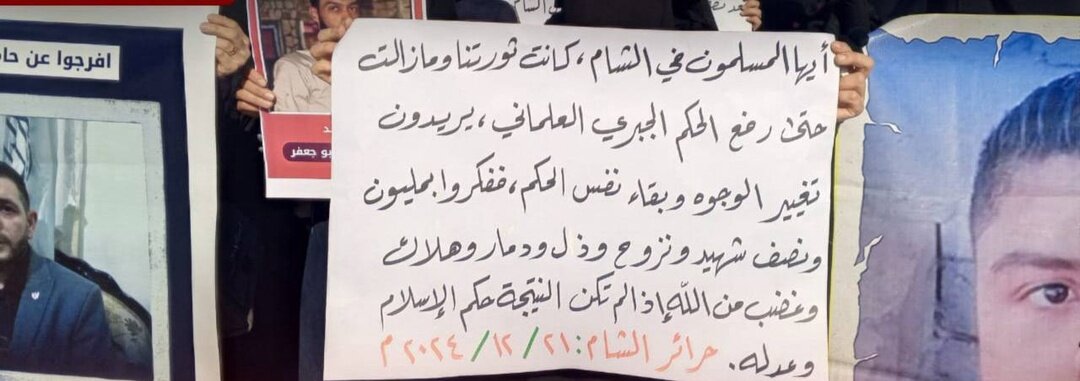 أيها المسلمون في الشام، كانت ثورتنا ومازالت
حتى رفع الحكم الجبري العلماني، يريدون
تغيير الوجوه وبقاء نفس الحكم، ففكروا بمليون
ونصف شهيد ونزوح وذل ودمار وهلاك
وغضب من الله إذا لم تكن النتيجة حكم الإسلام
وعدله. حرائر الشام: ٢١/١٢/٢٠٢٤م
افرجوا عن
بو جعفر